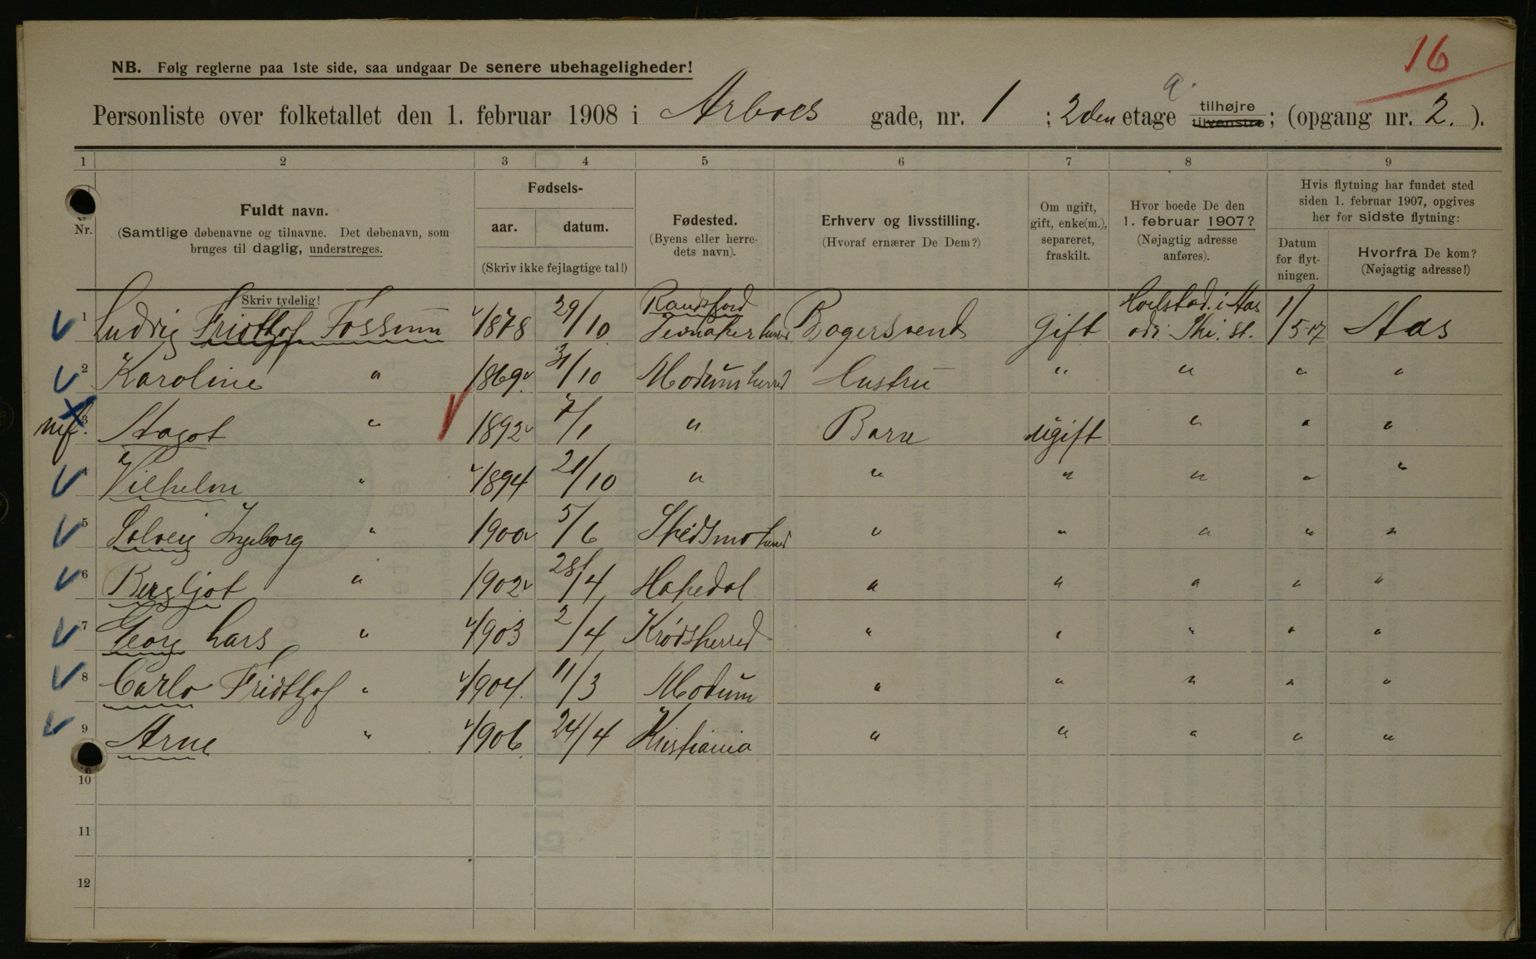 16
NB. Følg reglerne paa 1ste side, saa undgaar De senere ubehageligheder!
Personliste over folketallet den 1. februar 1908 i Arboes gade, nr. 1 ; 2den etage tilhøjre tilvenstre ; (opgang nr. 2. ).
1 2 3 4 5 6 7 8 9
Nr.
Fuldt navn.
(Samtlige døbenavne og tilnavne. Det døbenavn, som
bruges til daglig, understreges.
Skriv tydelig!
Fødsels-
aar. datum.
(Skriv ikke fejlagtige tal!)
Fødested.
(Byens eller herre-
dets navn).
Erhverv og livsstilling.
(Hvoraf ernærer De Dem?)
Om ugift,
gift, enke(m.),
separeret,
fraskilt.
Hvor boede De den
1. februar 1907?
(Nøjagtig adresse
anføres).
Hvis flytning har fundet sted
siden 1. februar 1907, opgives
her for sidste flytning:
Datum
for flyt-
ningen.
Hvorfra De kom?
(Nøjagtig adresse!)
1 Ludvig Fridthof Fossum 1878 29/10 Randsfjord Jevnaker herred Bagersvend Gift i Aas Ski. st. 1/5 07 Aas
2 Karoline " 1869 31/10 Modum herred Hustru " " " "
3 Aagot " 1892 7/1 " Barn ugift " " "
Vilhelm " 1894 21/10 " " " " " "
5 Solveig Ingeborg " 1900 5/6 Skedsmo herred " " " " "
6 Bergljot " 1902 28/4 Hakedal " " " " "
7 Georg Lars " 1903 2/4 Krødsherred " " " " "
8 Carlo Fridthof " 1904. 11/3 Modum " " " " "
9 Arne " 1906 24/4 Kristiania " " " " "
10
11
12